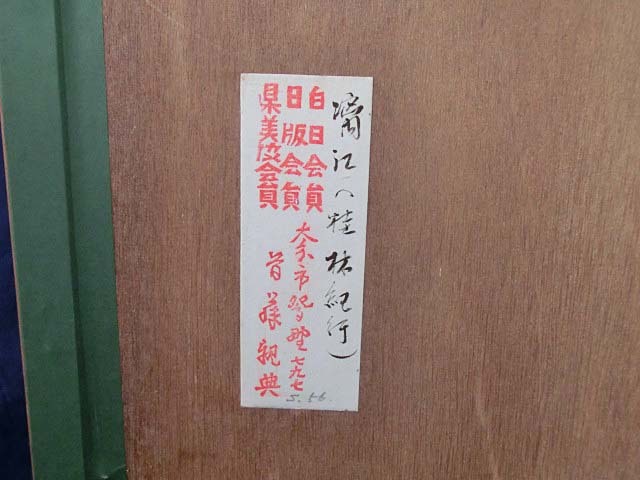 漓江(桂林紀行)
白日会会員
日版会会員
県美協会員
大分市曽野七九七
首藤親典
S.56.